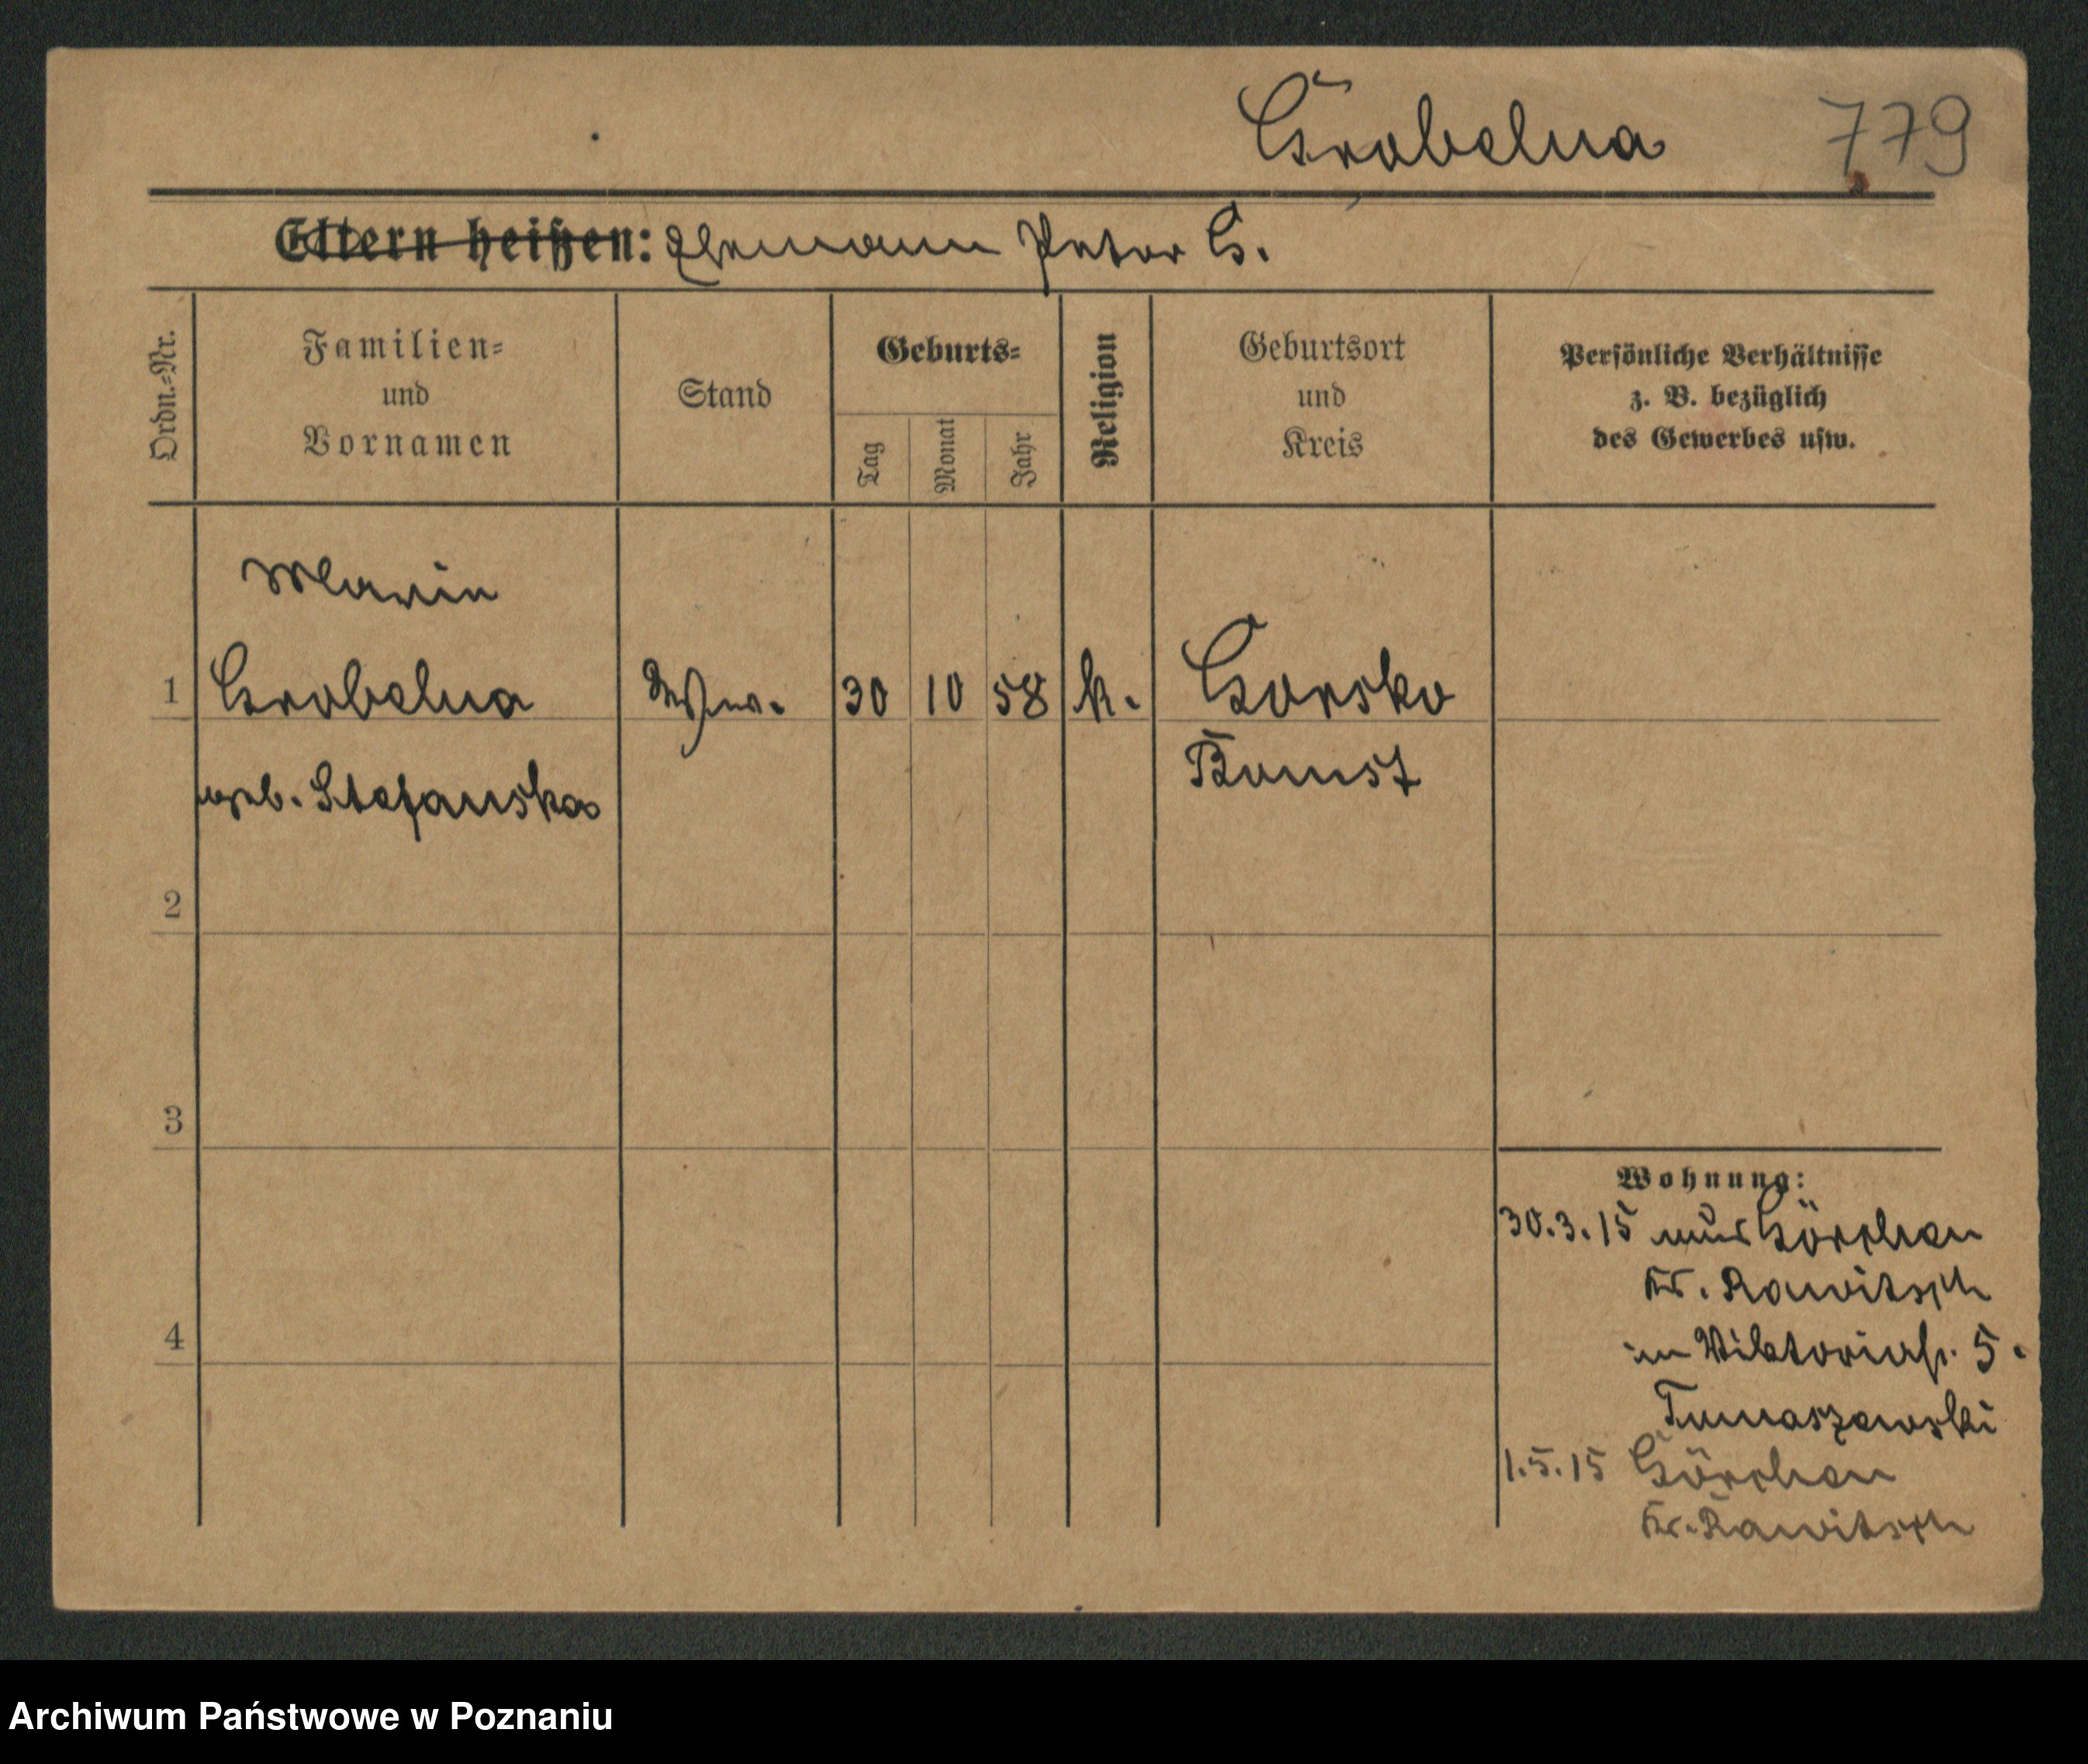 Grobelna 779
Eltern heißen: Ehemann Peter G.
Ordn.-Nr.
Familien-
und
Vornamen
Stand
Geburts-
Tag
Monat
Jahr
Religion
Geburtsort
und
Kreis
Persönliche Verhältnisse
z. B. bezüglich
des Gewerbes usw.
Marie
1 Grobelna 30 10 58 k. Gorsko
Bomst
geb. Stefanska
2
3
4
Wohnung:
30.3.15 aus Görchen
Kr. Rawitsch
in Viktoriastr. 5.
Tomaszewski
1.5.15 Görchen
Kr. Rawitsch
Archiwum Państwowe w Poznaniu